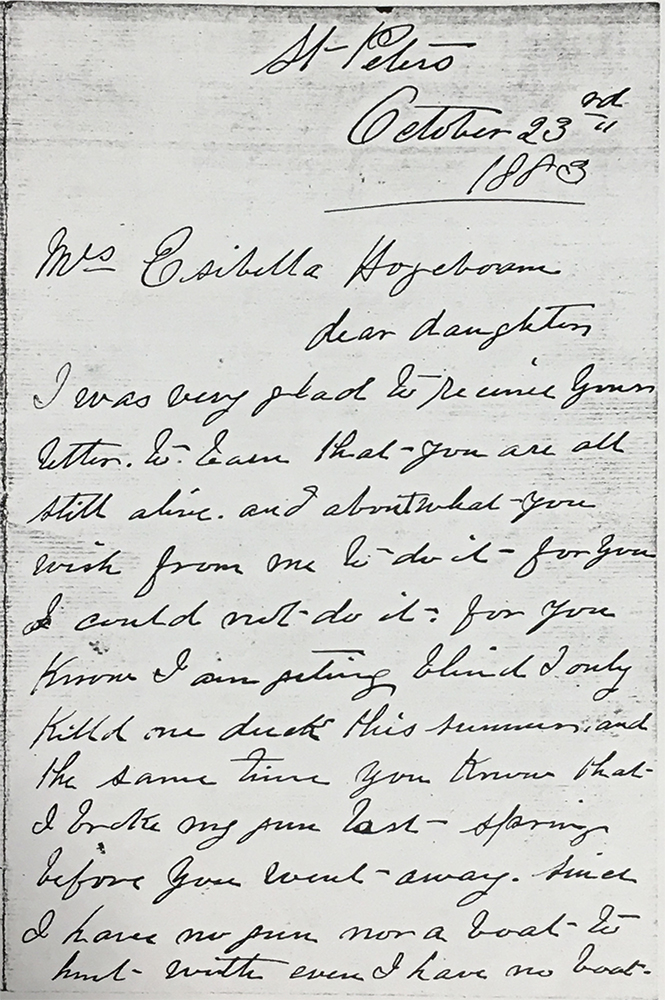 St Peters
October 23rd
1883
Mrs Esibella Hogeboom
dear daughter
I was very glad to recinee your
letter. to learn that you are all
still alive. and about what you
wish from me to do it for you
I could not do it: for you
Know I am geting blind I only
Killd one duck this summer. and
the same time you Know that
I broke my gun last spring
before you went away. since
I have no gun nor a boat to
hunt with even I have no boat